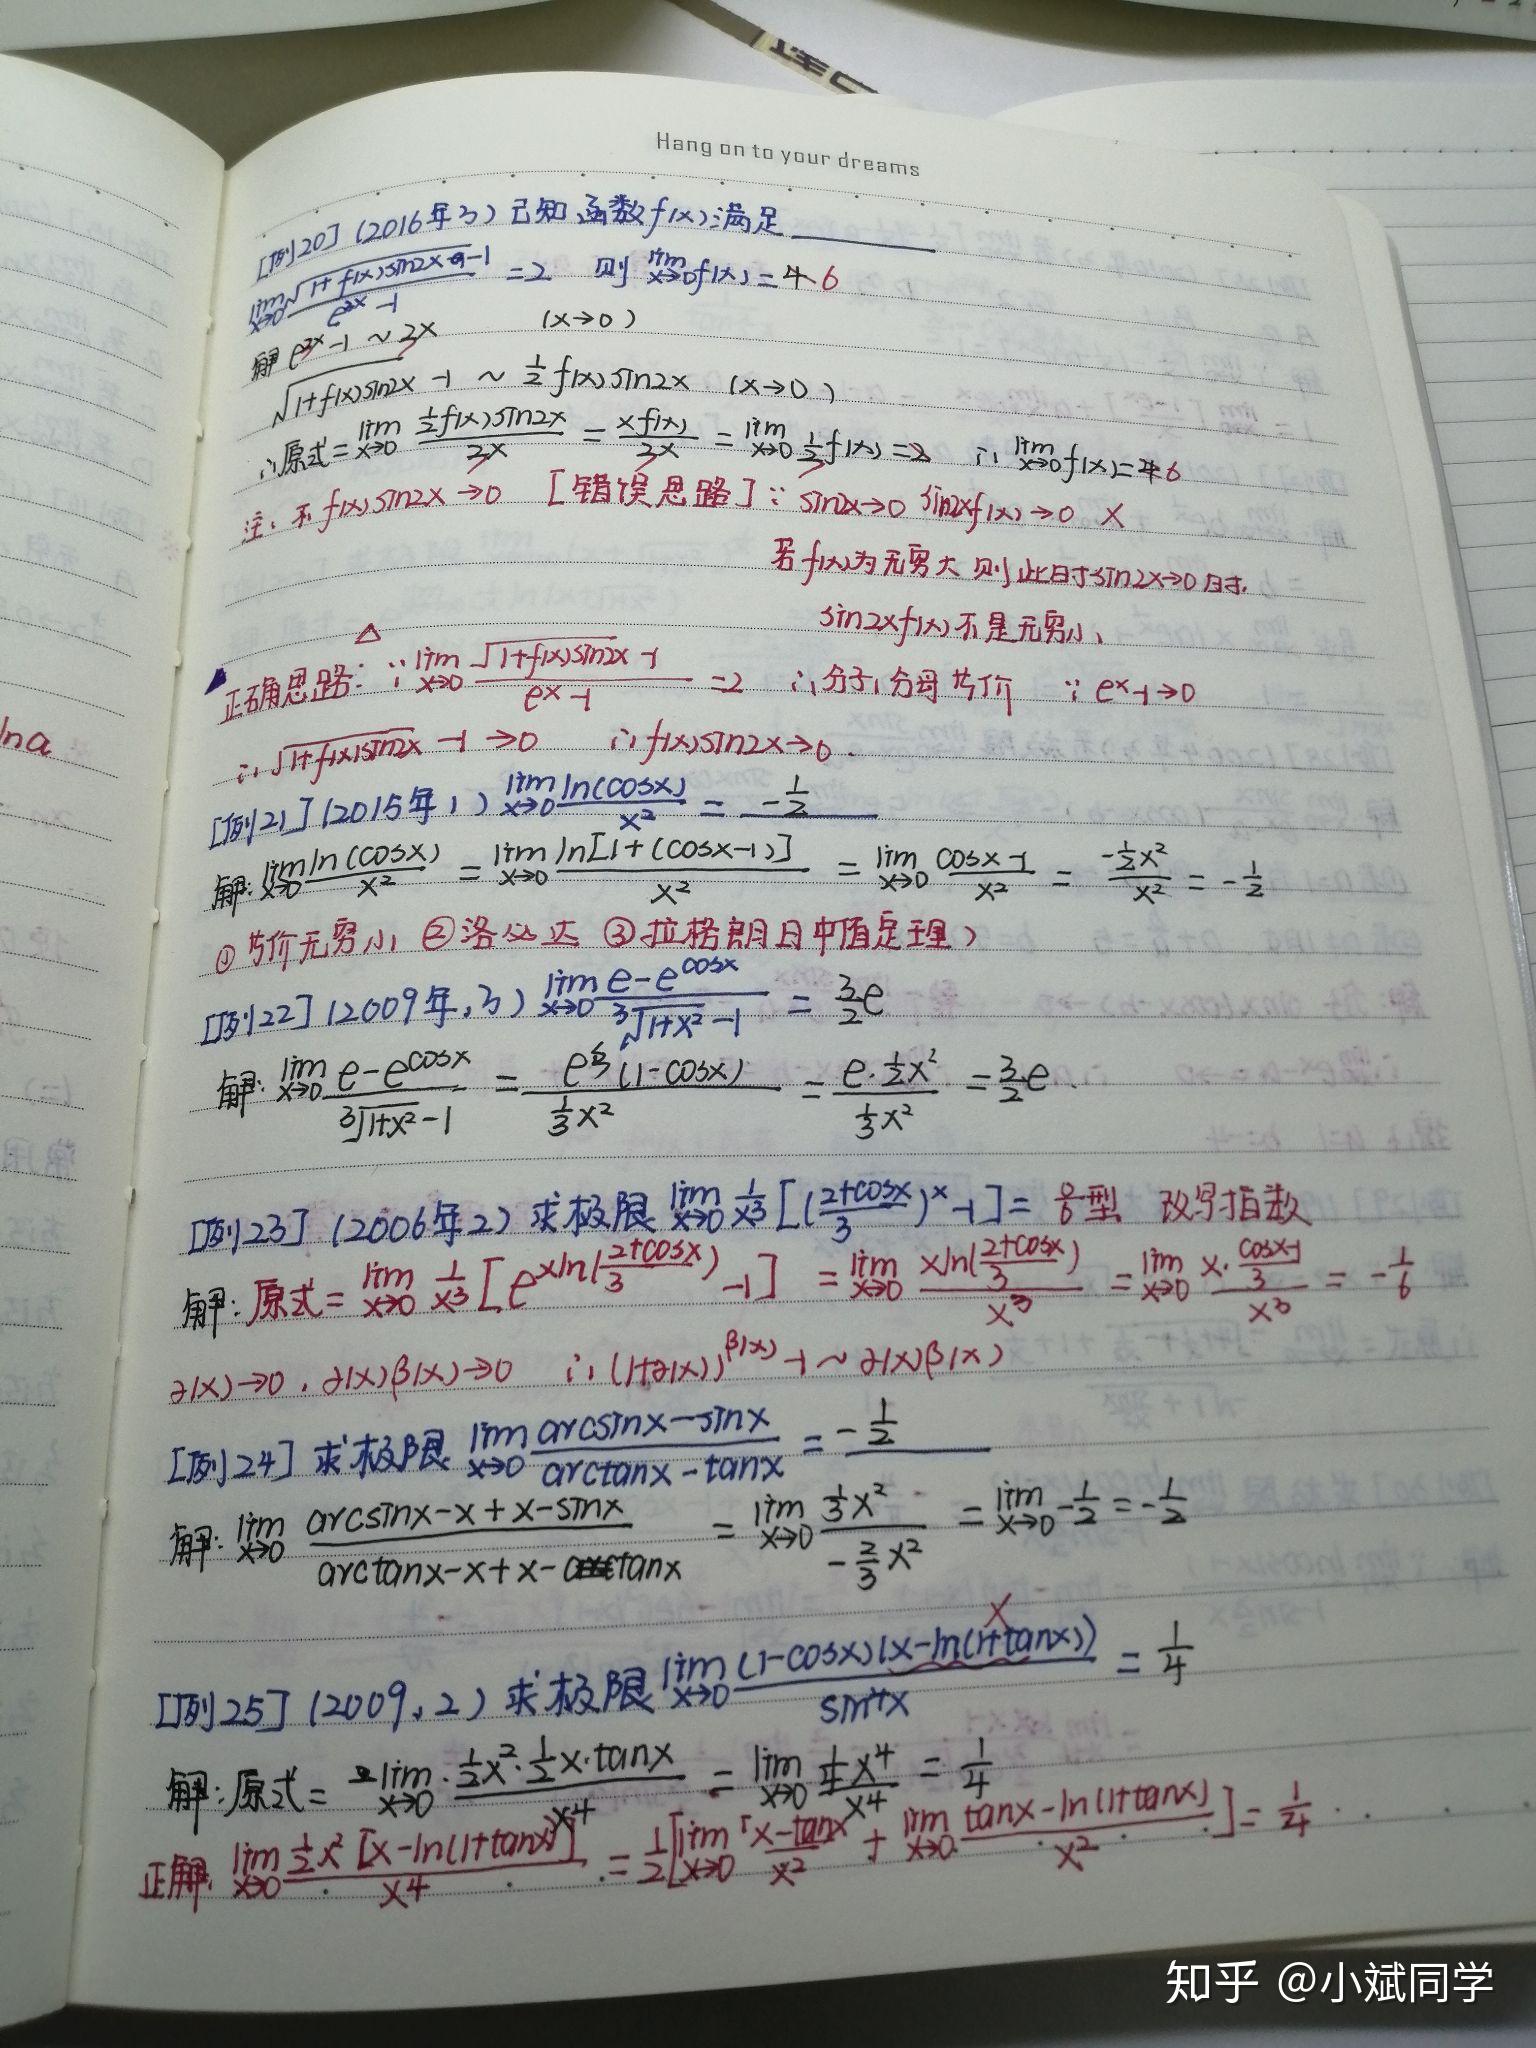 Hang on to your dreams
[例20] (2016年3) 已知函数f(x)满足
lim x→0 (√(1+f(x)sin2x) -1)/(e^(3x) -1) = 2 则 lim x→0 f(x) = 4 6
解 e^(3x) -1 ~ 3x (x→0)
√(1+f(x)sin2x) -1 ~ 1/2 f(x)sin2x (x→0)
∴原式= lim x→0 (1/2 f(x)sin2x)/(3x) = xf(x)/3x = lim x→0 1/3 f(x) = 2 ∴ lim x→0 f(x) = 4 6
注: f(x)sin2x→0 [错误思路] ∵ sin2x→0 sin2xf(x)→0 ×
若f(x)为无穷大 则此时sin2x→0时,
sin2xf(x)不是无穷小、
△
正确思路: ∵ lim x→0 (√(1+f(x)sin2x) -1)/(e^x -1) = 2 ∴分子,分母等价 ∵ e^x -1→0
∴ √(1+f(x)sin2x) -1→0 ∴ f(x)sin2x→0.
lna
[例21] (2015年1) lim x→0 ln(cosx)/x² = -1/2
解: lim x→0 ln(cosx)/x² = lim x→0 ln[1+(cosx-1)]/x² = lim x→0 (cosx-1)/x² = (-1/2 x²)/x² = -1/2
①等价无穷小 ②洛必达 ③拉格朗日中值定理)
[例22] (2009年,3) lim x→0 (e-e^cosx)/(³√(1+x²) -1) = 3/2 e
解: lim x→0 (e-e^cosx)/(³√(1+x²) -1) = e^ξ(1-cosx)/(1/3 x²) = (e·1/2 x²)/(1/3 x²) = 3/2 e.
[例23] (2006年2) 求极限 lim x→0 1/x³ [((2+cosx)/3)^x -1] = 0/0型 改写指数
解: 原式= lim x→0 1/x³ [e^(xln((2+cosx)/3)) -1] = lim x→0 xln((2+cosx)/3)/x³ = lim x→0 (x·(cosx-1)/3)/x³ = -1/6
α(x)→0, α(x)β(x)→0 ∴ (1+α(x))^β(x) -1 ~ α(x)β(x)
[例24] 求极限 lim x→0 (arcsinx-sinx)/(arctanx-tanx) = -1/2
解: lim x→0 (arcsinx-x+x-sinx)/(arctanx-x+x-tanx) = lim x→0 (1/3 x²)/(-2/3 x²) = lim x→0 -1/2 = -1/2
×
[例25] (2009,2) 求极限 lim x→0 (1-cosx)(x-ln(1+tanx))/sin⁴x = 1/4
解: 原式= lim x→0 (1/2 x²·1/2 x·tanx)/x⁴ = lim x→0 (1/4 x⁴)/x⁴ = 1/4
正解. lim x→0 (1/2 x² [x-ln(1+tanx)])/x⁴ = 1/2[lim x→0 (x-tanx)/x² + lim x→0 (tanx-ln(1+tanx))/x²] = 1/4
知乎 @小斌同学